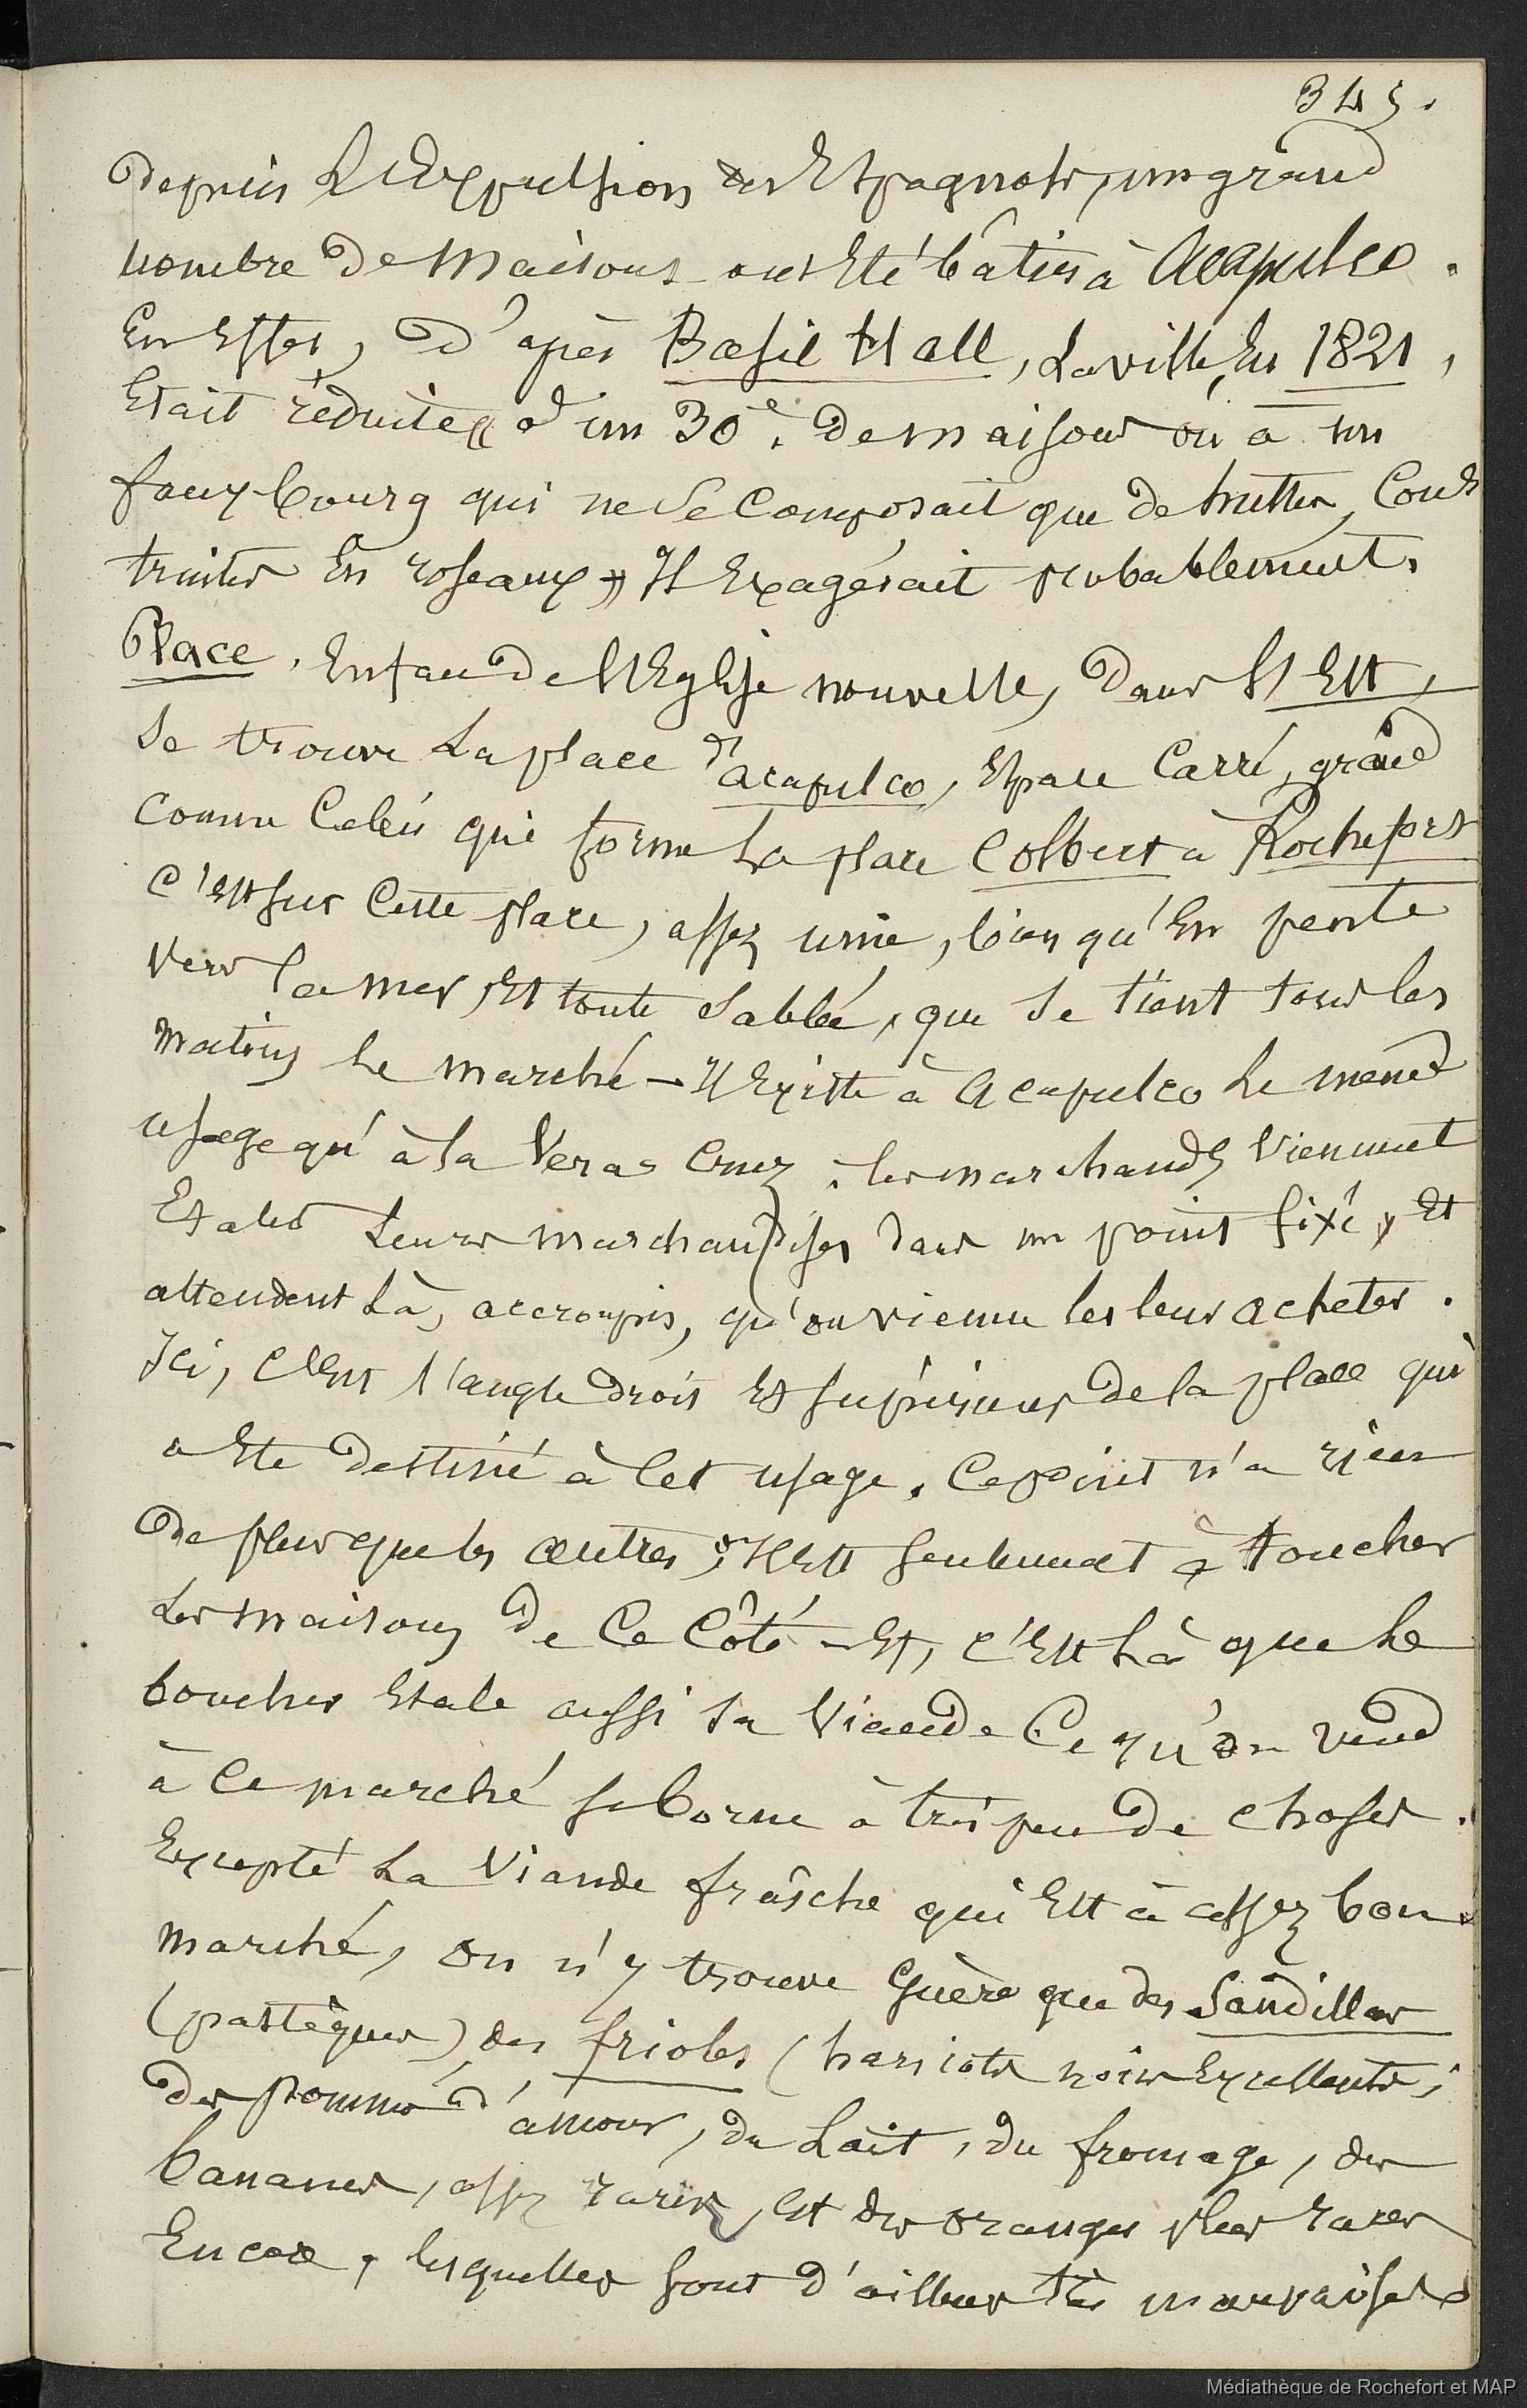 345.
Depuis L'Expulsion des Espagnols, un grand
nombre de maisons ont Eté bâties à Acapulco.
En Effet, d'après Basil Hall, La ville, En 1821,
Etait réduite « à un 30e. de maisons ou à un
fauxbourg qui ne se Composait que de huttes, Cons
truites En roseaux » Il Exagérait probablement.
Place. En face de l'Eglise nouvelle, dans l'Est,
se trouve La place d'acapulco, Espace Carré, grand
comme Celui qui forme La place Colbert à Rochefort
C'est sur Cette place, assez unie, bien qu'En pente
vers la mer, Et toute sablée, que se tient tous les
matins Le marché – Il Existe à Acapulco Le même
usage qu'à la Vera-Cruz : les marchands Viennent
Etaler Leurs marchandises dans un point fixé, Et
attendent Là, accroupis, qu'on vienne les leur acheter.
Ici, C'Est l'angle droit Et supérieur de la place qui
a Eté destiné à Cet usage. Ce point n'a rien
de plus que les autres ; Il Est seulement à toucher
Les maisons de Ce Côté – Et, C'Est Là que Le
boucher Etale aussi sa Viande Ce qu'on vend
à Ce marché se borne à très peu de Choses.
Excepté La Viande fraîche qui Est à assez bon
marché, on n'y trouve Guère que des Sandillas
(pastèques) des frioles (haricots noirs Excellents,
des pommes d'amour, du Lait, du fromage, des
bananes, assez rares, Et des oranges plus rares
Encore, lesquelles sont d'ailleurs très mauvaises
Médiathèque de Rochefort et MAP